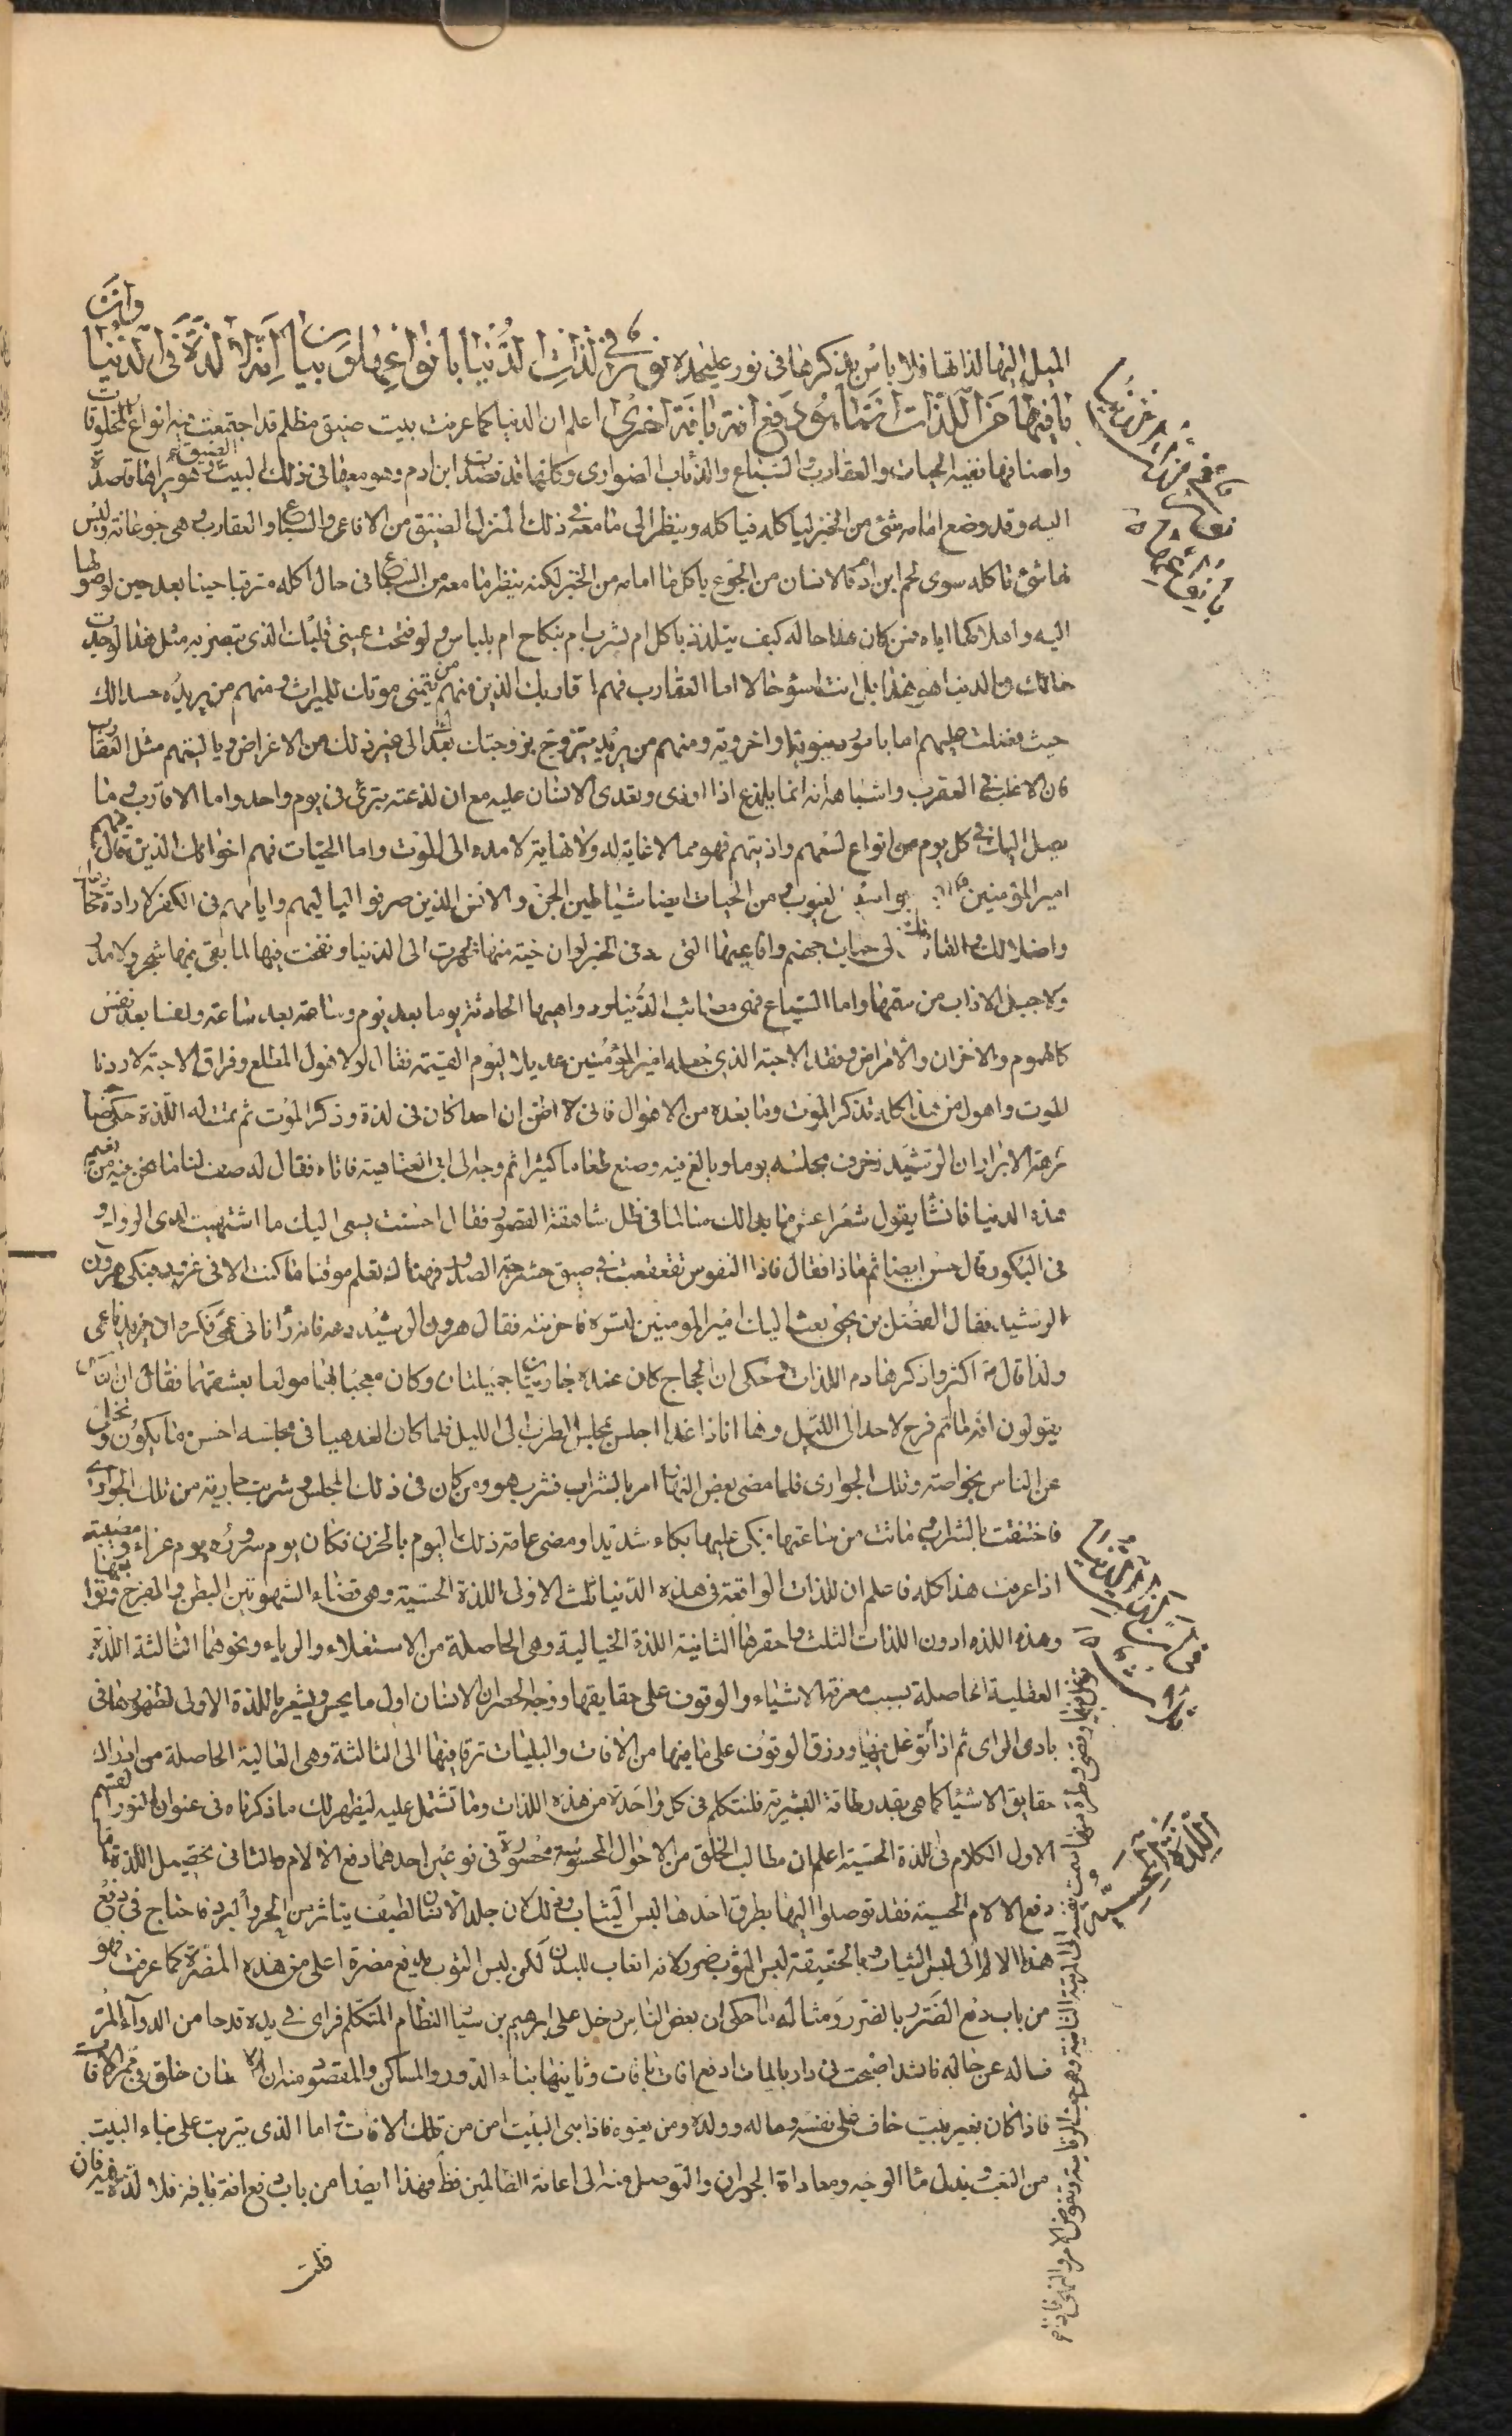 الميل اليها لذاتها فلا باس بذكرها في نور عليحده نور في لذات الدنيا بانواعها وبيان انه لا لذة في الدنيا وان
ما فيها من اللذات انما هو دفع افة بافة اخرى اعلم ان الدنيا كما عرفت بيت ضيق مظلم قد اجتمعت فيه انواع المخلوقات
واصنافها ففيه الحيات والعقارب والسباع والذئاب الضواري وكلها قد قصدت ابن ادم وهو معها في ذلك البيت الضيق وهو يراها قاصدة
اليه وقد وضع امامه شئ من الخبز لياكله فياكله وينظر الى ما معه في ذلك المنزل الضيق من الافاعي والسباع والعقارب وهي جوعانة وليس
لها شئ تاكله سوى لحم ابن ادم فالانسان من الجوع ياكل ما امامه من الخبز لكنه ينظر ما معه من السباع في حال اكله مترقبا حينا بعد حين لوصولها
اليه واهلاكها اياه فمن كان هذا حاله كيف يتلذذ باكل ام بشرب ام بنكاح ام بلباس ولو فتحت عيني قلبك الذي تبصر به مثل هذا لوجدت
حالك في الدنيا هو هذا بل انت اسوء حالا اما العقارب فهم اقاربك الذين منهم من يتمنى موتك للميراث ومنهم من يريده حسدا لك
حيث فضلت عليهم اما بامور دنيوية او اخروية ومنهم من يريد يتزوج بزوجتك بعدك الى غير ذلك من الاغراض ويا ليتهم مثل العقارب
فان الاغلب في العقرب واشباهها انه انما يلذع اذا اوذى وتعدى الانسان عليه مع ان لذعته تبرئ في يوم واحد واما الاقارب وما
يصل اليك في كل يوم من انواع لسعهم واذيتهم فهو مما لا غاية له ولا نهاية لامده الى الموت واما الحيات فهم اخوانك الذين قال فيهم
امير المؤمنين جواسيس العيوب ومن الحيات ايضا شياطين الجن والانس الذين صرفوا لياليهم وايامهم في الكفر لارادة
واضلالك والقائك الى حيات جهنم وافاعيها التي في الخبر لو ان حية منها ظهرت الى الدنيا ونفخت فيها لما بقى فيها شجر ولا مدر
ولا جبل الا ذاب من سمها واما السباع فهي مصائب الدنيا ودواهيها الحادثة يوما بعد يوم وساعة بعد ساعة ونفسا بعد نفس
كالهموم والاحزان والامراض وفقد الاحبة الذي جعله امير المؤمنين عديلا ليوم القيمة فقال لولا هول المطلع وفراق الاحبة لاردنا
الموت واهول من هذا كله تذكر الموت وما بعده من الاهوال فاني لا اظن ان احدا كان في لذة وذكر الموت ثم تمت له اللذة حكى صاحب
نزهة الابرار ان الرشيد زخرف مجلسه يوما وبالغ فيه وصنع طعاما كثيرا ثم وجه الى ابي العتاهية فاتاه فقال له صف لنا ما نحن فيه من نعيم
هذه الدنيا فانشا يقول شعرا عش ما بدا لك سالما في ظل شاهقة القصور فقال احسنت يسعى اليك ما اشتهيت لدى الرواح
في البكور قال حسن ايضا ثم ماذا فقال فاذا النفوس تقعقعت في ضيق حشرجة الصدور فهناك تعلم موقنا ما كنت الا في غرور فبكى هرون
الرشيد فقال الفضل بن يحيى بعث اليك امير المومنين لتسره فاحزنته فقال هرون الرشيد دعه فانه رانا في عمى فكره ان يزيدنا عمى
ولذا قال اكثروا ذكر هادم اللذات وحكى ان الحجاج كان عنده جاريتان جميلتان وكان معجبا بهما مولعا بعشقهما فقال ان الناس
يقولون انه ما تم فرح لاحد الى الليل وها انا ذا غدا اجلس مجلس الطرب الى الليل فلما كان الغد هيأ في مجلسه احسن ما يكون وتخلى
عن الناس بخواصه وتلك الجواري فلما مضى بعض النهار امر بالشراب فشرب هو ومن كان في ذلك المجلس وشربت جارية من تلك الجواري
فاختنقت بالشراب وماتت من ساعتها فبكى عليها بكاء شديدا ومضى عامة ذلك اليوم بالحزن فكان يوم سروره يوم عزاء ومصيبة
اذا عرفت هذا كله فاعلم ان اللذات الواقعة في هذه الدنيا ثلث الاولى اللذة الحسية وهي قضاء الشهوتين البطن والفرج وتوابعها
وهذه اللذه ادون اللذات الثلث واحقرها الثانية اللذة الخيالية وهي الحاصلة من الاستعلاء والرياء ونحوهما الثالثة اللذة
العقلية الحاصلة بسبب معرفة الاشياء والوقوف على حقايقها ووجه الحصر ان الانسان اول ما يحس ويشعر باللذة الاولى لظهورها في
بادى الراى ثم اذا توغل فيها ورزق الوقوف على ما فيها من الافات والبليات ترقا فيها الى الثالثة وهي الغالية الحاصلة من ادراك
حقايق الاشيا كما هي بقدر طاقة البشرية فلنتكلم في كل واحدة من هذه اللذات وما تشتمل عليه ليظهر لك ما ذكرناه في عنوان النور القسم
الاول الكلام في اللذة الحسية اعلم ان مطالب الخلق من الاحوال المحسوسة محصورة في نوعين احدهما دفع الالام والثاني تحصيل اللذة اما
دفع الالام الحسية فقد توصلوا اليها بطرق احدها لبس الثياب وذلك لان جلد الانسان لطيف يتاثر من الحر والبرد فاحتاج في دفع
هذا الالم الى لبس الثياب وبالحقيقة لبس الثوب ضرر لانه اتعاب للبدن لكن لبس الثوب يدفع مضرة اعلى من هذه المضرة كما عرفت فهو
من باب دفع الضرر بالضرر ومثاله ما حكى ان بعض الناس دخل على ابرهيم بن سيا النظام المتكلم فراى في يده قدحا من الدواء المر
فساله عن حاله فانشد اصبحت في دار بليات ادفع افات بافات وثانيها بناء الدور والمساكن والمقصود منه ان الانسان خلق في ممر الافات
فاذا كان بغير بيت خاف على نفسه وماله وولده ومن يعوله فاذا بنى البيت امن من تلك الافات اما الذي يترتب على بناء البيت
من التعب وبذل ماء الوجه ومعاداة الجيران والتوصل منه الى اعانة الظالمين فظ فهذا ايضا من باب دفع افة بافة فلا لذة فيه فان
قلت
نور في لذات الدنيا بانواعها
في ان اللذات الدنيا ثلثة
اللذة الحسية
الى المرتبة الثانية وهي حب الرياسة ونفوذ الامر والنهي